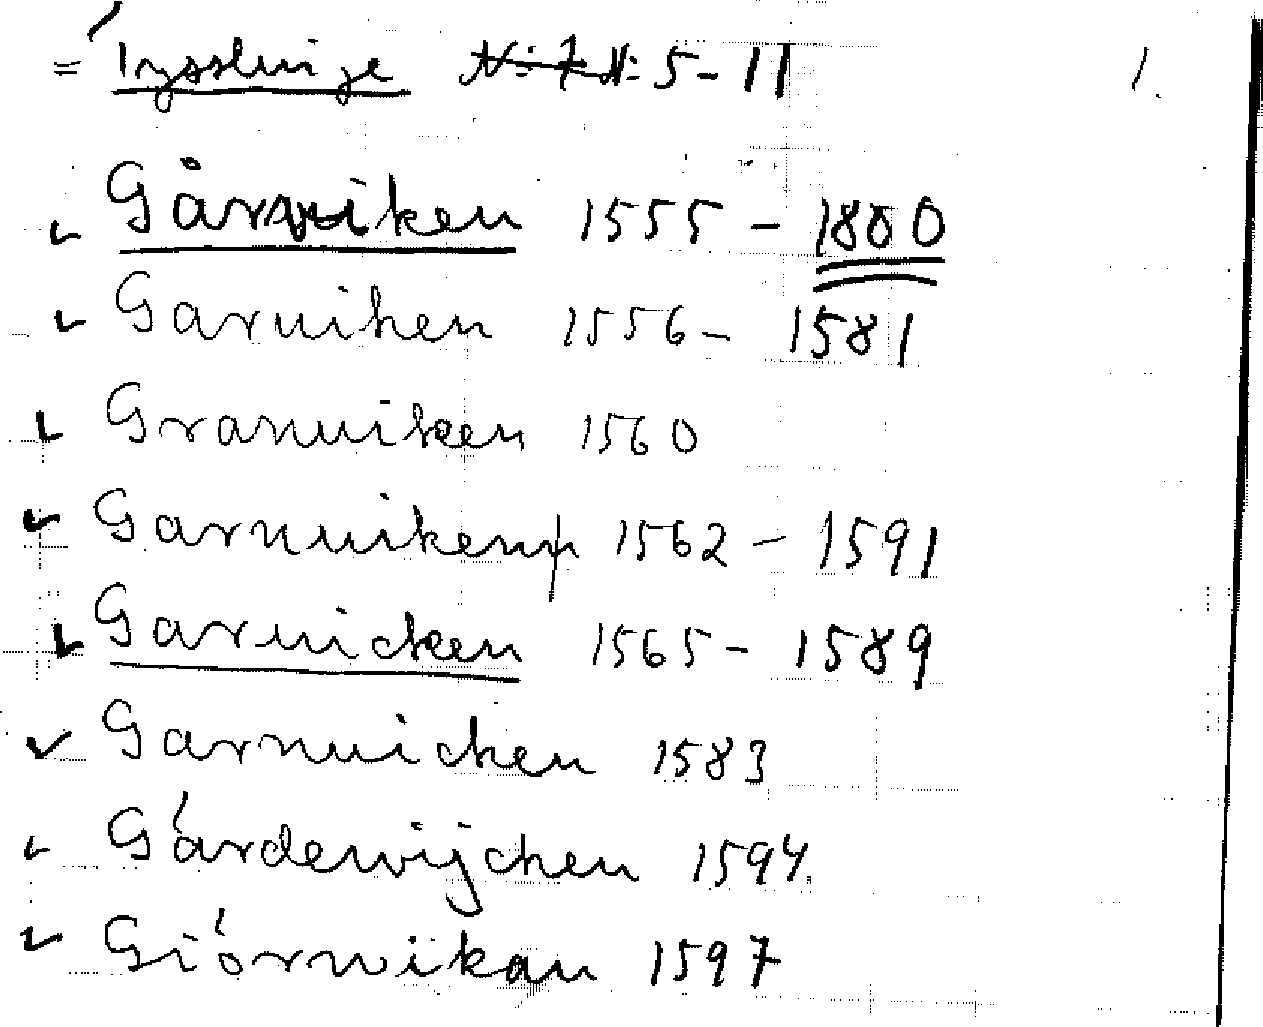 = Tysslinge N: 7 N: 5-11 1.
Gårviken 1555 - 1800
Garuiken 1556 - 1581
Granuiken 1560
Garnuiken 1562 - 1591
Garuicken 1565 - 1589
Garnuichen 1583
Gárdewijchen 1594.
Giórnwikan 1597